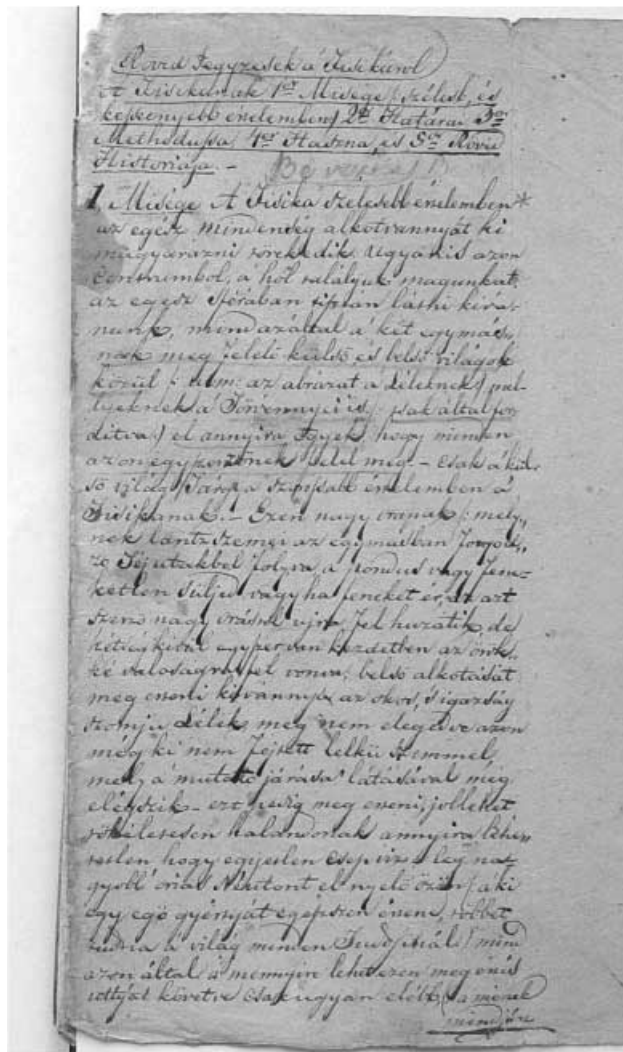 Rövid Jegyzések a' Fisikárol
A' Fisikának 1ör Misége szélesb, és
keskenyebb értelemben 2or Határa 3or
Methodussa 4er Haszna, és 5ör Rövid
Historiája. –
1, Misége A Fisika szelesebb értelemben *
az egész mindenség alkotvannyát ki
magyarázni törekedik. Ugyanis azon
Centrumbol, a' hol találjuk magunkat,
az egész sférában tisztán látni kivá-
nunk, mindazáltal a' két egymás,,
nak meg felelő külső és belső világok
közül /: ... az abrázat a' Léleknek/
a' Törvennyei is, csak által for
ditva/ el annyira egyek, hogy minden
azon egy ... felel meg. – Csak a' kül-
ső világ Tárgya szorossabb értelemben a'
Fisikanak. – Ezen nagy oranak /: mely,,
nek lántzszemei az egymásban forgod,,
zo Tejutakbol folyva, a fondus vagy fene-
ketlen süljed vagy ha feneket ér, az azt
szerző nagy orásnál ujra fel huzatik, de
egy perczan kezdetben az örök-
ké valoságra fel vonva, belső alkotását
meg érteni kivannya az okos, 's igazság
szomju Lélek, meg nem elegedve azon
még ki nem fejtett lelkü szemmel,
mely a' mutató járása' látásával meg
elégszik – ezt pedig meg érteni, jollehet
tökéletesen halandonak annyira lehe,,
tetlen hogy egyetlen csep viz a' leg na-
gyobb oriás Nevtont el nyelő özön/ a ki
egy égő gyertyát egészen értene, többet
tudna a' világ minden Tudossinál/ mind
azon által a' mennyire lehet ezen meg érés
uttyát követve csak ugyan elébb a minek
mindjárt